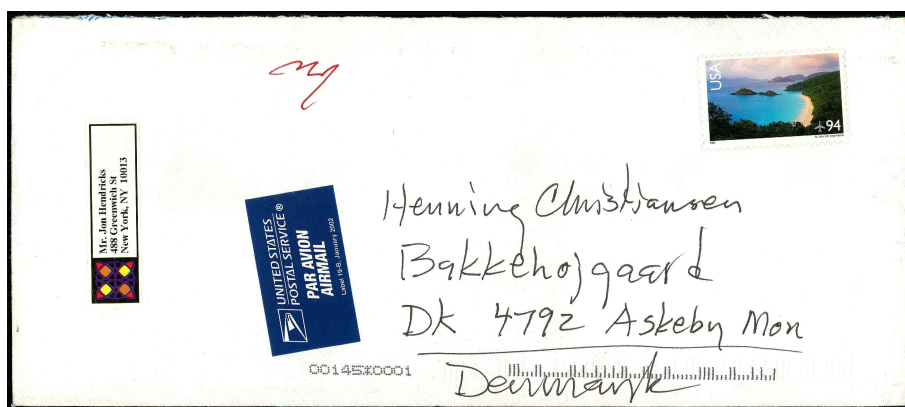 Mr. Jon Hendricks
488 Greenwich St
New York, NY 10013
UNITED STATES
POSTAL SERVICE®
PAR AVION
AIRMAIL
Label 19-B, January 2002
USA
94
Henning Christiansen
Bakkehojgaard
DK 4792 Askeby Mon
Denmark
00145X0001